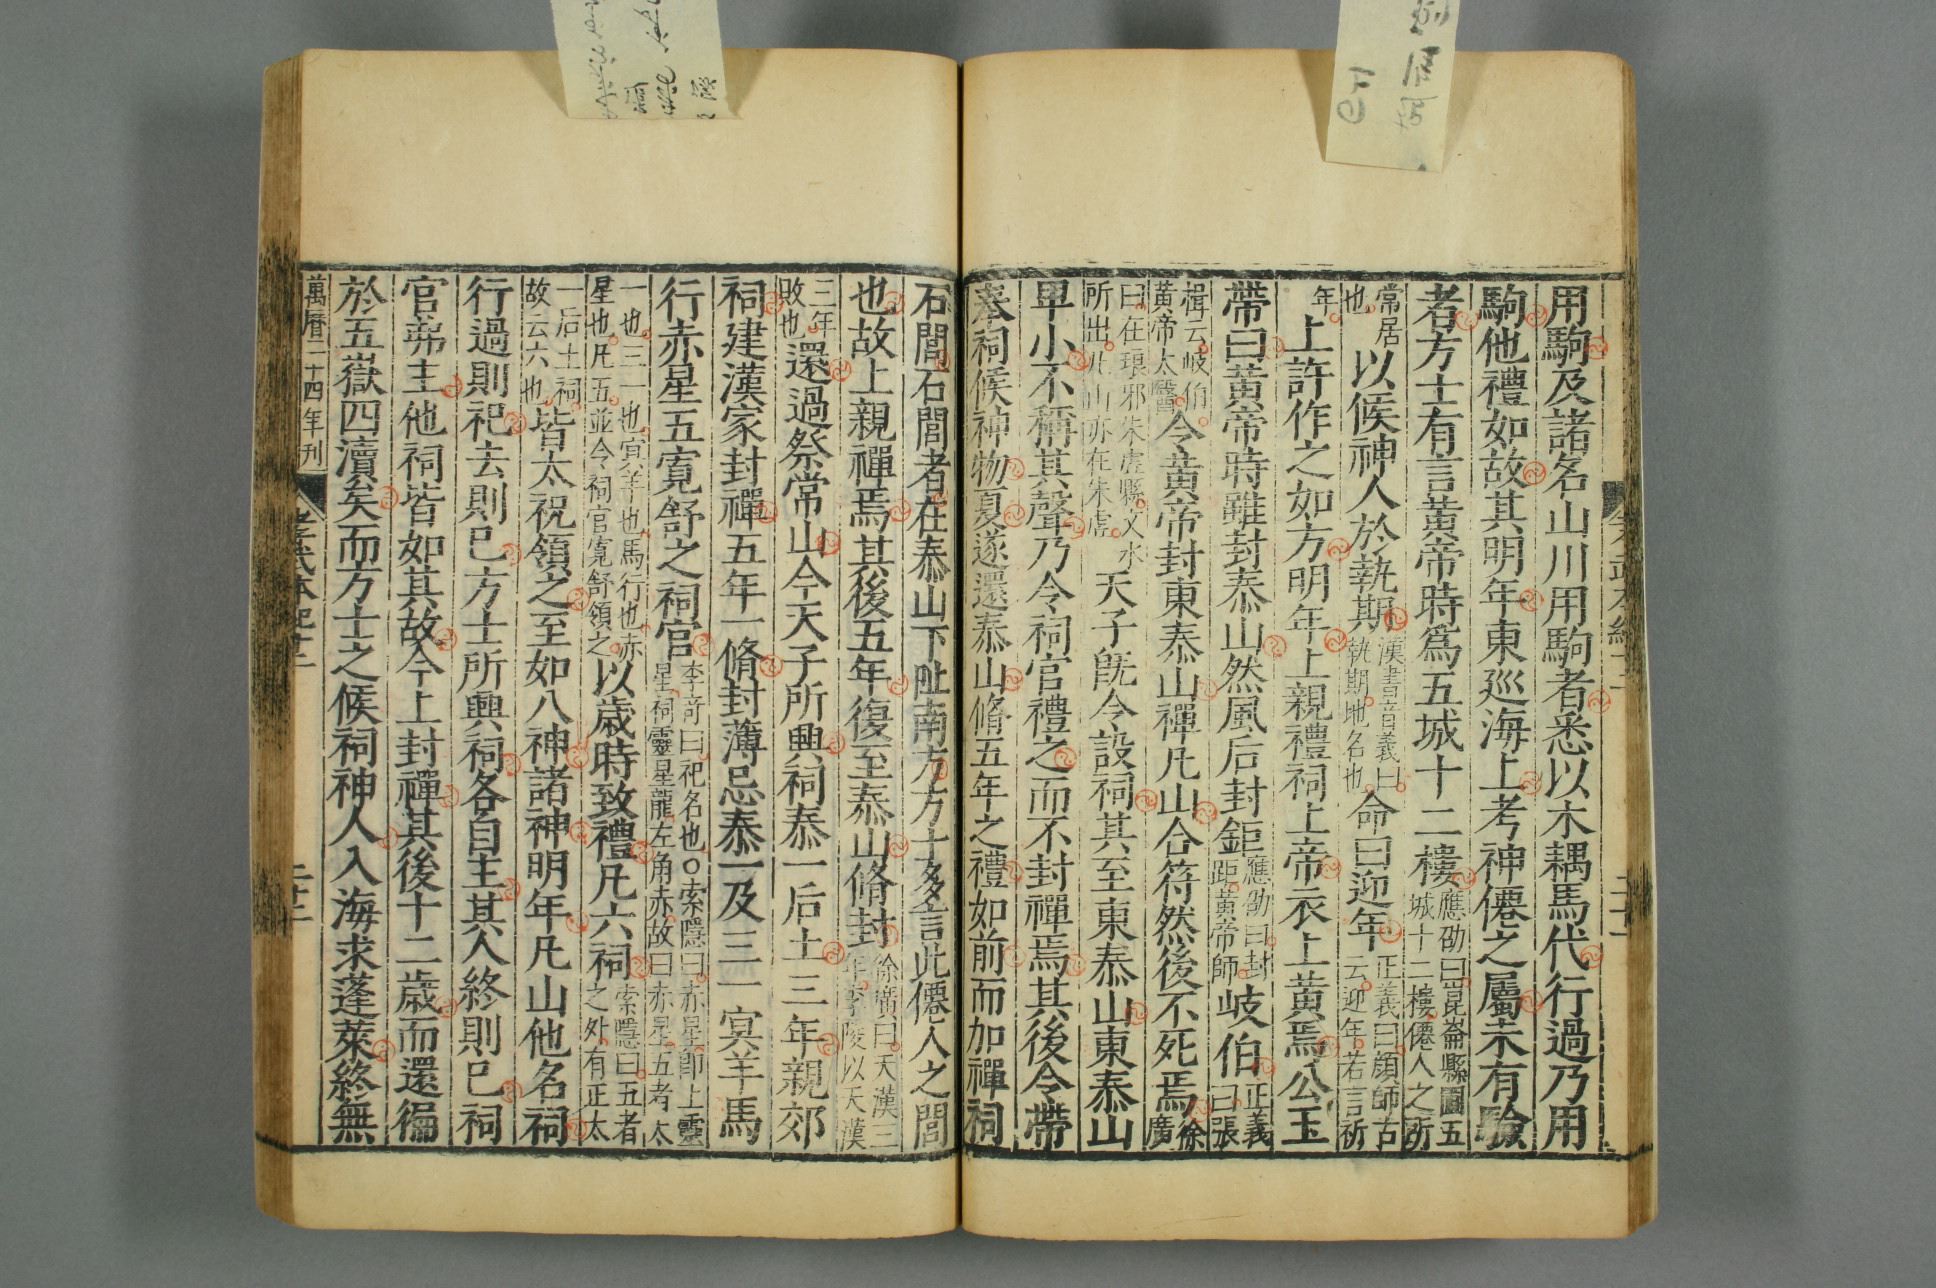 用駒及諸名山川用駒者悉以木耦馬代行過乃用
駒他禮如故其明年東廵海上考神僊之屬未有驗
者方士有言黃帝時爲五城十二樓應劭曰崑崙縣圃五
城十二樓僊人之所
常居
也以候神人於執期漢書音義曰
執期地名也命曰迎年正義曰顔師古
云迎年若言祈
年上許作之如方明年上親禮祠上帝衣上黃焉公玉
帶曰黃帝時雖封泰山然風后封鉅應劭曰封
距黃帝師岐伯正義
曰張
楫云岐伯
黃帝太醫令黃帝封東泰山禪凡山合符然後不死焉徐
廣
曰在琅邪朱虚縣汶水
所出此山亦在朱虚天子旣令設祠其至東泰山東泰山
卑小不稱其聲乃令祠官禮之而不封禪焉其後令帶
奉祠候神物夏遂還泰山脩五年之禮如前而加禪祠
石閭石閭者在泰山下阯南方方士多言此僊人之閭
也故上親禪焉其後五年復至泰山脩封徐廣曰天漢三
年李陵以天漢
三年
敗也還過祭常山今天子所興祠泰一后土三年親郊
祠建漢家封禪五年一脩封薄忌泰一及三一冥羊馬
行赤星五寛舒之祠官李竒曰祀名也○索隱曰赤星即上靈
星祠靈星龍左角赤故曰赤星五者太
一也三一也冥羊也馬行也赤
星也凡五並令祠官寛舒領之以歳時致禮凡六祠索隱曰五者
之外有正太
一后土祠
故云六也皆太祝領之至如八神諸神明年凡山他名祠
行過則祀去則已方士所興祠各自主其人終則已祠
官弗主他祠皆如其故今上封禪其後十二歳而還徧
於五嶽四瀆矣而方士之候祠神人入海求蓬萊終無
萬曆二十四年刊
孝武本紀十二
二十二